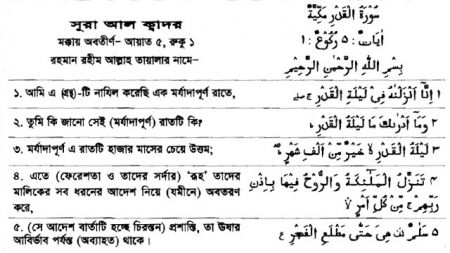 সূরা আল ক্বাদর
মক্কায় অবতীর্ণ– আয়াত ৫, রুকু ১
রহমান রহীম আল্লাহ তায়ালার নামে–
سُوْرَةُ الْقَدْرِ مَكِّيَّةٌ
اٰيَاتُ : ٥ رُكُوْعُ : ١
بِسْمِ اللّٰهِ الرَّحْمٰنِ الرَّحِيْمِ
১. আমি এ (গ্রন্থ)-টি নাযিল করেছি এক মর্যাদাপূর্ণ রাতে,
١ اِنَّآ اَنْزَلْنٰهُ فِيْ لَيْلَةِ الْقَدْرِ ج صلے
২. তুমি কি জানো সেই (মর্যাদাপূর্ণ) রাতটি কি?
٢ وَمَآ اَدْرٰىكَ مَا لَيْلَةُ الْقَدْرِ ؕ
৩. মর্যাদাপূর্ণ এ রাতটি হাজার মাসের চেয়ে উত্তম;
٣ لَيْلَةُ الْقَدْرِ لا خَيْرٌ مِّنْ اَلْفِ شَهْرٍ ؕ
৪. এতে (ফেরেশতা ও তাদের সর্দার) 'রূহ' তাদের
মালিকের সব ধরনের আদেশ নিয়ে (যমীনে) অবতরণ
করে,
٤ تَنَزَّلُ الْمَلٰٓئِكَةُ وَالرُّوْحُ فِيْهَا بِاِذْنِ
رَبِّهِمْ ج مِّنْ كُلِّ اَمْرٍ لا
৫. (সে আদেশ বার্তাটি হচ্ছে চিরন্তন) প্রশান্তি, তা ঊষার
আবির্ভাব পর্যন্ত (অব্যাহত) থাকে।
٥ سَلٰمٌ قف هِيَ حَتّٰى مَطْلَعِ الْفَجْرِ ع